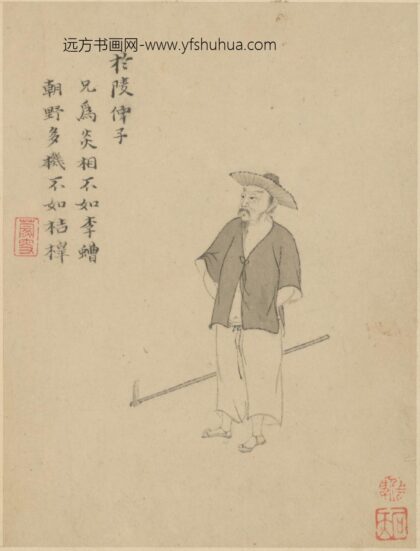 远方书画网-www.yfshuhua.com
於陵仲子
兄爲炎相不如李螬
朝野多機不如桔橰